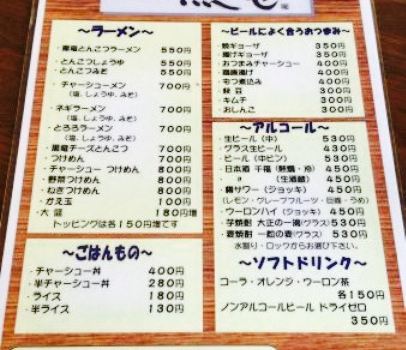 ～ラーメン～
・黒竜とんこつラーメン 550円
・とんこつしょうゆ 550円
・とんこつみそ 550円
・チャーシューメン 700円
（塩、しょうゆ、みそ）
・ネギラーメン 700円
（塩、しょうゆ、みそ）
・とろろラーメン 700円
（塩、しょうゆ、みそ）
・黒竜チーズとんこつ 700円
・つけめん 700円
・チャーシュー つけめん 800円
・野菜つけめん 800円
・ねぎつけめん 800円
・かえ玉 100円
・大盛 180円増
トッピングは各150円増です
～ごはんもの～
・チャーシュー丼 400円
・半チャーシュー丼 280円
・ライス 180円
・半ライス 130円
～ビールによく合うおつまみ～
・焼ギョーザ 350円
・水ギョーザ 350円
・おつまみチャーシュー 400円
・鶏唐揚げ 400円
・もつ煮込み 400円
・枝豆 300円
・キムチ 300円
・おしんこ 300円
～アルコール～
・生ビール（中） 530円
・グラス生ビール 430円
・ビール（中ビン） 530円
・日本酒 千福（熱燗・冷） 450円
〃 （生酒蔵） 450円
・酎サワー（ジョッキ） 450円
（レモン・グレープフルーツ・巨峰・うめ）
・ウーロンハイ（ジョッキ） 450円
・芋焼酎 大正の一滴（グラス） 530円
・麦焼酎 一粒の麦（グラス） 530円
水割り・ロックからお選び下さい。
～ソフトドリンク～
コーラ・オレンジ・ウーロン茶
各150円
ノンアルコールビール ドライゼロ
350円